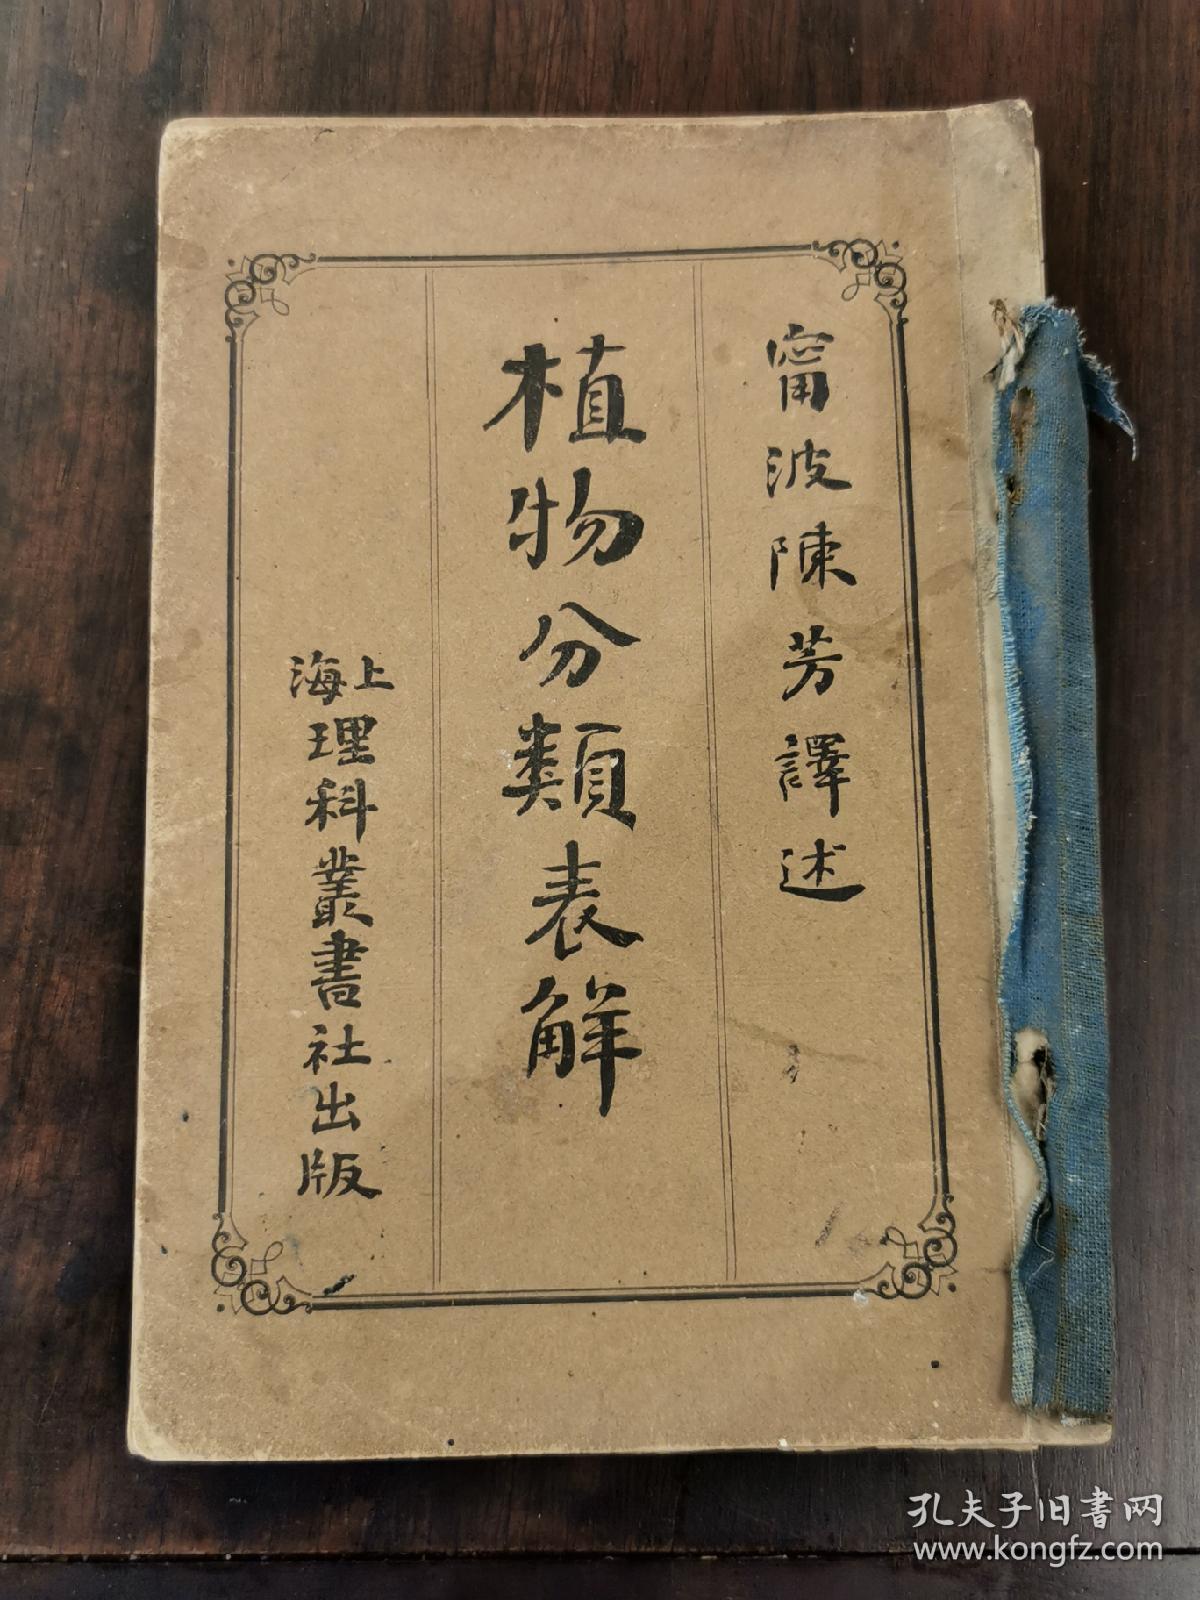 甯波陳芳譯述
植物分類表解
上海
理科叢書社出版
孔夫子旧书网
www.kongfz.com